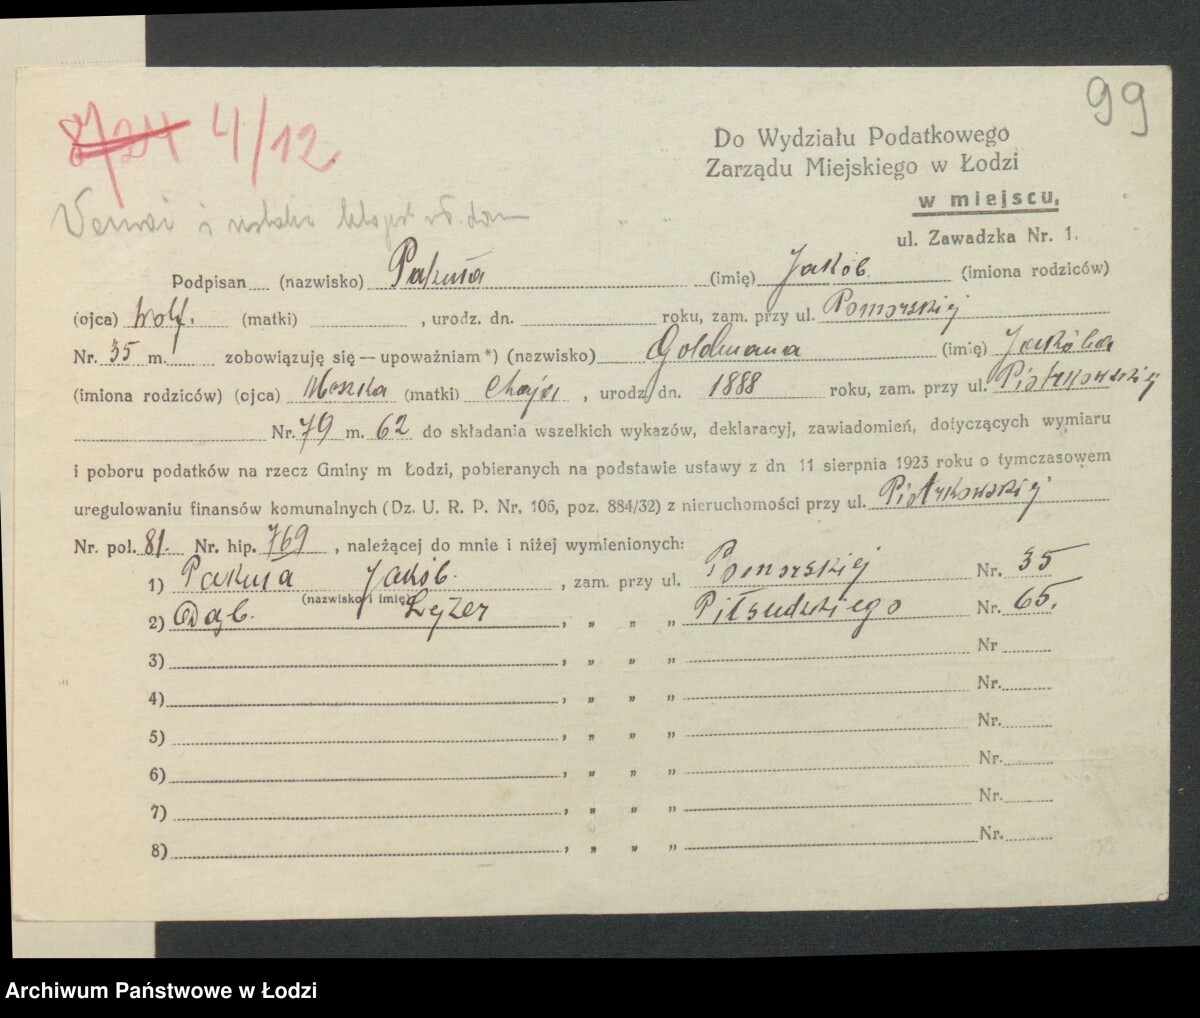 99
8/24 4/12
Do Wydziału Podatkowego
Zarządu Miejskiego w Łodzi
w miejscu,
ul. Zawadzka Nr. 1.
i
Podpisan (nazwisko) Pakuła (imię) Jakób. (imiona rodziców)
(ojca) Wolf. (matki) , urodz. dn. roku, zam. przy ul. Pomorskiej
Nr. 35 m. zobowiązuję się — upoważniam*) (nazwisko) Goldmana (imię) Jakóba
(imiona rodziców) (ojca) Moszka (matki) Chaja , urodz. dn. 1888 roku, zam. przy ul. Piotrkowskiej
Nr. 79 m. 62 do składania wszelkich wykazów, deklaracyj, zawiadomień, dotyczących wymiaru
i poboru podatków na rzecz Gminy m Łodzi, pobieranych na podstawie ustawy z dn 11 sierpnia 1923 roku o tymczasowem
uregulowaniu finansów komunalnych (Dz. U. R. P. Nr. 106, poz. 884/32) z nieruchomości przy ul. Piotrkowskiej
Nr. pol. 81. Nr. hip. 769 , należącej do mnie i niżej wymienionych:
1) Pakuła Jakób. , zam. przy ul. Pomorskiej Nr. 35
(nazwisko i imię)
2) Dąb. Lejzer , „ „ „ Piłsudskiego Nr. 65.
3) , „ „ „ Nr
4) , „ „ „ Nr.
5) , „ „ „ Nr.
6) , „ „ „ Nr.
7) , „ „ „ Nr.
8) , „ „ „ Nr.
Archiwum Państwowe w Łodzi